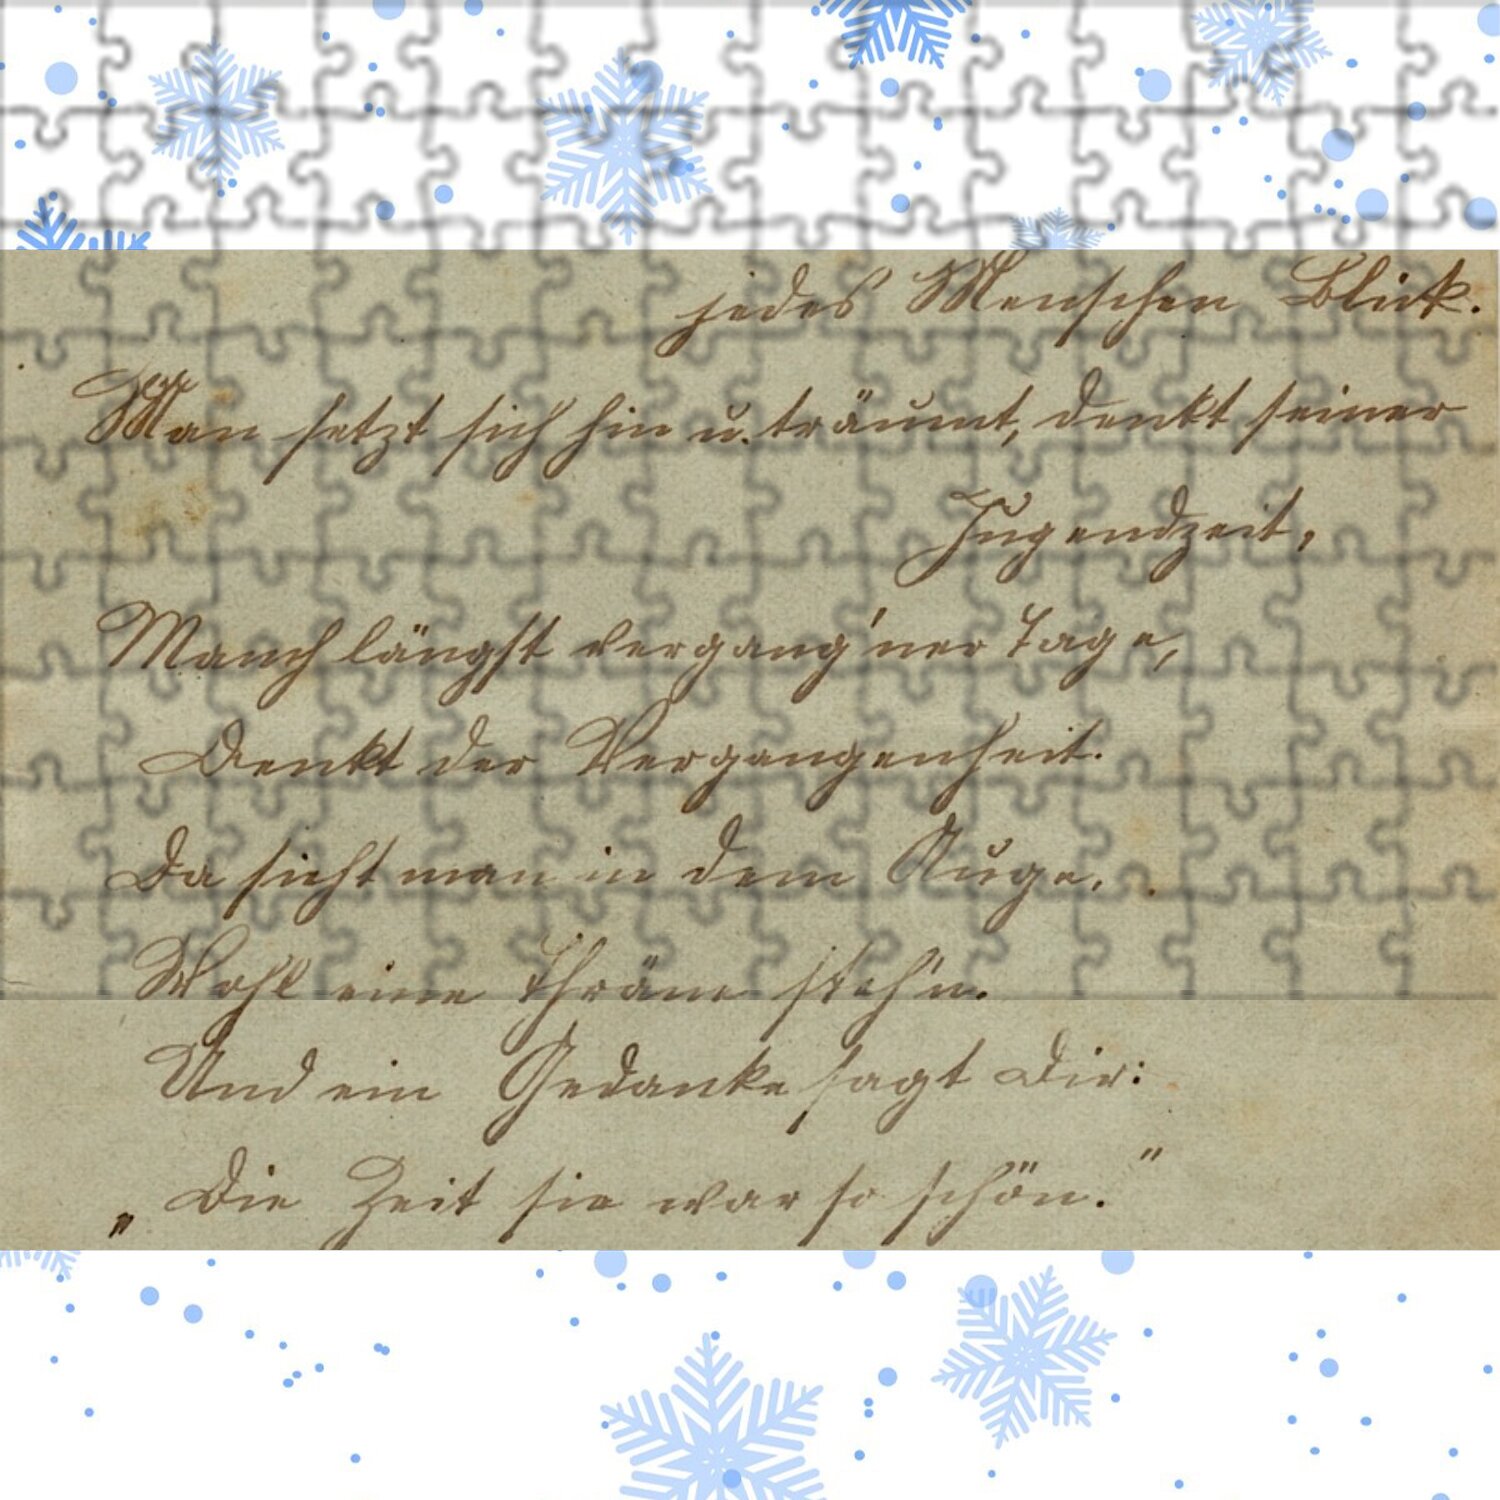 jedes Menschen Blick.
Man setzt sich hin u. träumt, denkt seiner
Jugendzeit,
Manch längst vergang'ner Tage,
Denkt der Vergangenheit.
Da sieht man in dem Auge,
Wohl eine Thräne steh'n.
Und ein Gedanke sagt Dir:
„Die Zeit sie war so schön.“